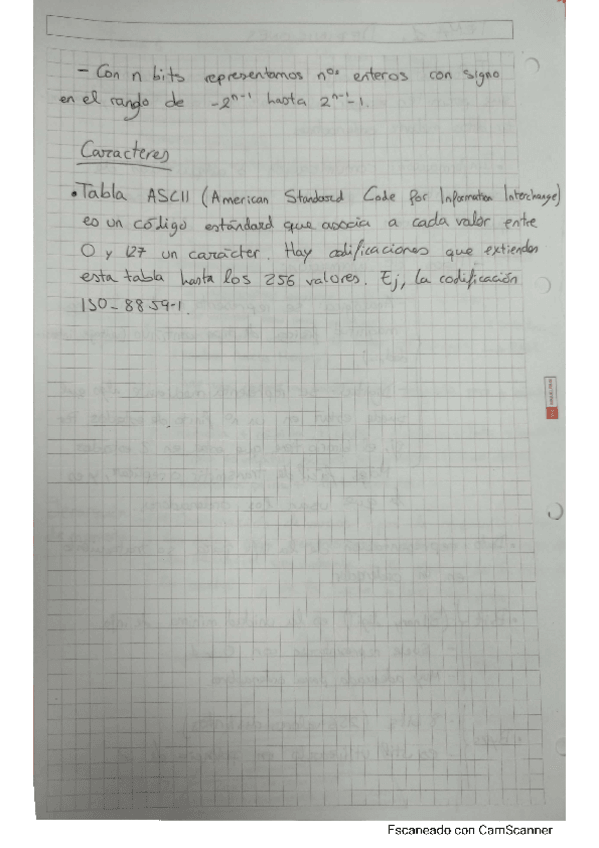 - Con n bits representamos nºs enteros con signo
en el rango de -2ⁿ⁻¹ hasta 2ⁿ⁻¹-1.
Caracteres
• Tabla ASCII (American Standard Code for Information Interchange)
es un código estándard que asocia a cada valor entre
0 y 127 un carácter. Hay codificaciones que extienden
esta tabla hasta los 256 valores. Ej, la codificación
ISO-8859-1.
Escaneado con CamScanner